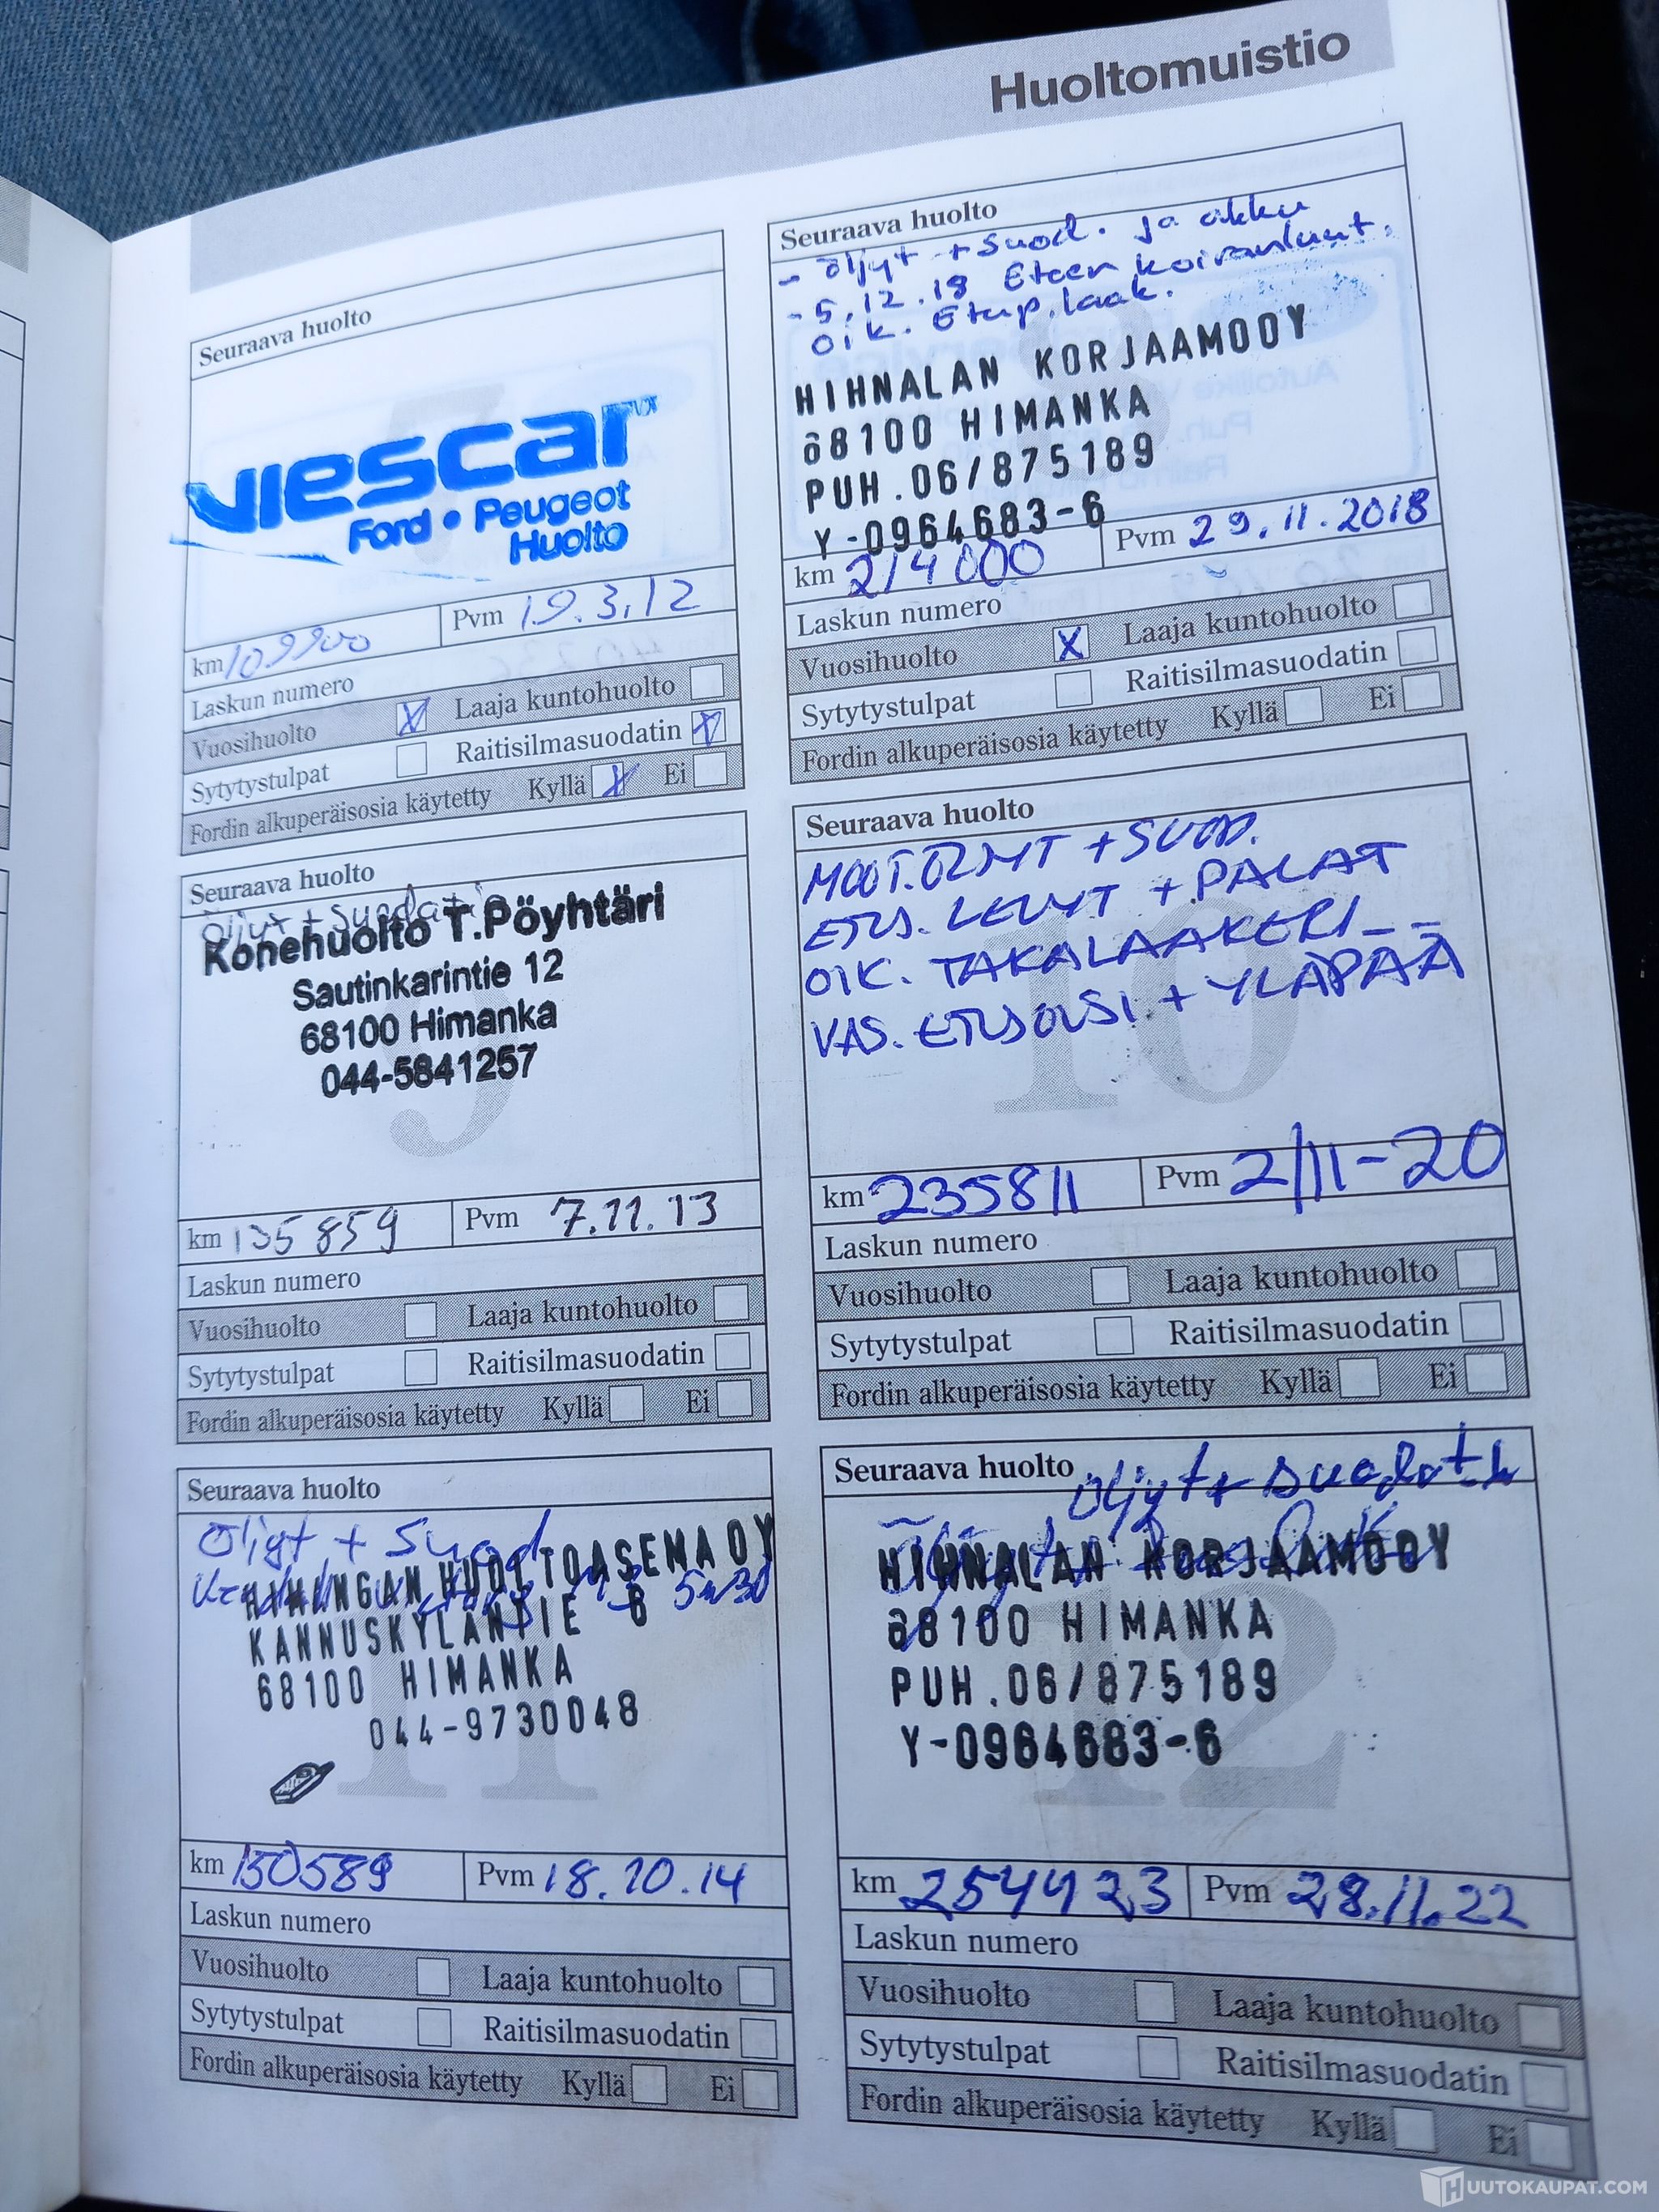 Huoltomuistio
Seuraava huolto
viescar
Ford • Peugeot
Huolto
km 109900 Pvm 19.3.12
Laskun numero
Vuosihuolto X Laaja kuntohuolto
Sytytystulpat Raitisilmasuodatin X
Fordin alkuperäisosia käytetty Kyllä X Ei
Seuraava huolto
öljyt + suodati
Konehuolto T.Pöyhtäri
Sautinkarintie 12
68100 Himanka
044-5841257
9
km 135859 Pvm 7.11.13
Laskun numero
Vuosihuolto Laaja kuntohuolto
Sytytystulpat Raitisilmasuodatin
Fordin alkuperäisosia käytetty Kyllä Ei
Seuraava huolto
Öljyt + Suod
HUOLTOASEMA OY
5w30
KANNUSKYLÄNTIE 8
68100 HIMANKA
044-9730048
11
km 150589 Pvm 18.10.14
Laskun numero
Vuosihuolto Laaja kuntohuolto
Sytytystulpat Raitisilmasuodatin
Fordin alkuperäisosia käytetty Kyllä Ei
Seuraava huolto
- öljyt + suod. ja akku
- 5.12.18 Eteen koiranluut.
oik. Etup. laak.
HIHNALAN KORJAAMO OY
68100 HIMANKA
PUH.06/875189
Y-0964683-6
km 214000 Pvm 29.11.2018
Laskun numero
Vuosihuolto X Laaja kuntohuolto
Sytytystulpat Raitisilmasuodatin
Fordin alkuperäisosia käytetty Kyllä Ei
Seuraava huolto
MOOT.ÖLJYT + SUOD.
ETUS. LEVYT + PALAT
OIK. TAKALAAKERI
VAS. ETUSOUSI + YLÄPÄÄ
10
km 235811 Pvm 2/11-20
Laskun numero
Vuosihuolto Laaja kuntohuolto
Sytytystulpat Raitisilmasuodatin
Fordin alkuperäisosia käytetty Kyllä Ei
Seuraava huolto öljyt + suodatin
HIHNALAN KORJAAMO OY
68100 HIMANKA
PUH.06/875189
Y-0964683-6
12
km 254423 Pvm 28.11.22
Laskun numero
Vuosihuolto Laaja kuntohuolto
Sytytystulpat Raitisilmasuodatin
Fordin alkuperäisosia käytetty Kyllä Ei
HUUTOKAUPAT.COM